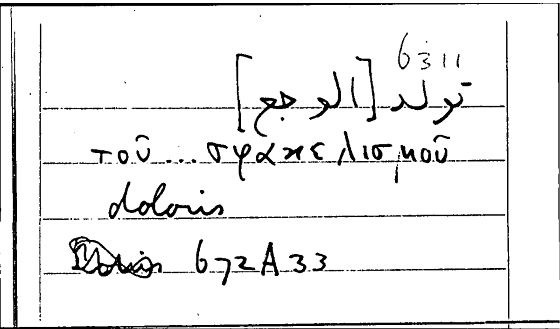 6311
تولد [الوجع]
τοῦ... σφακελισμοῦ
doloris
672A33